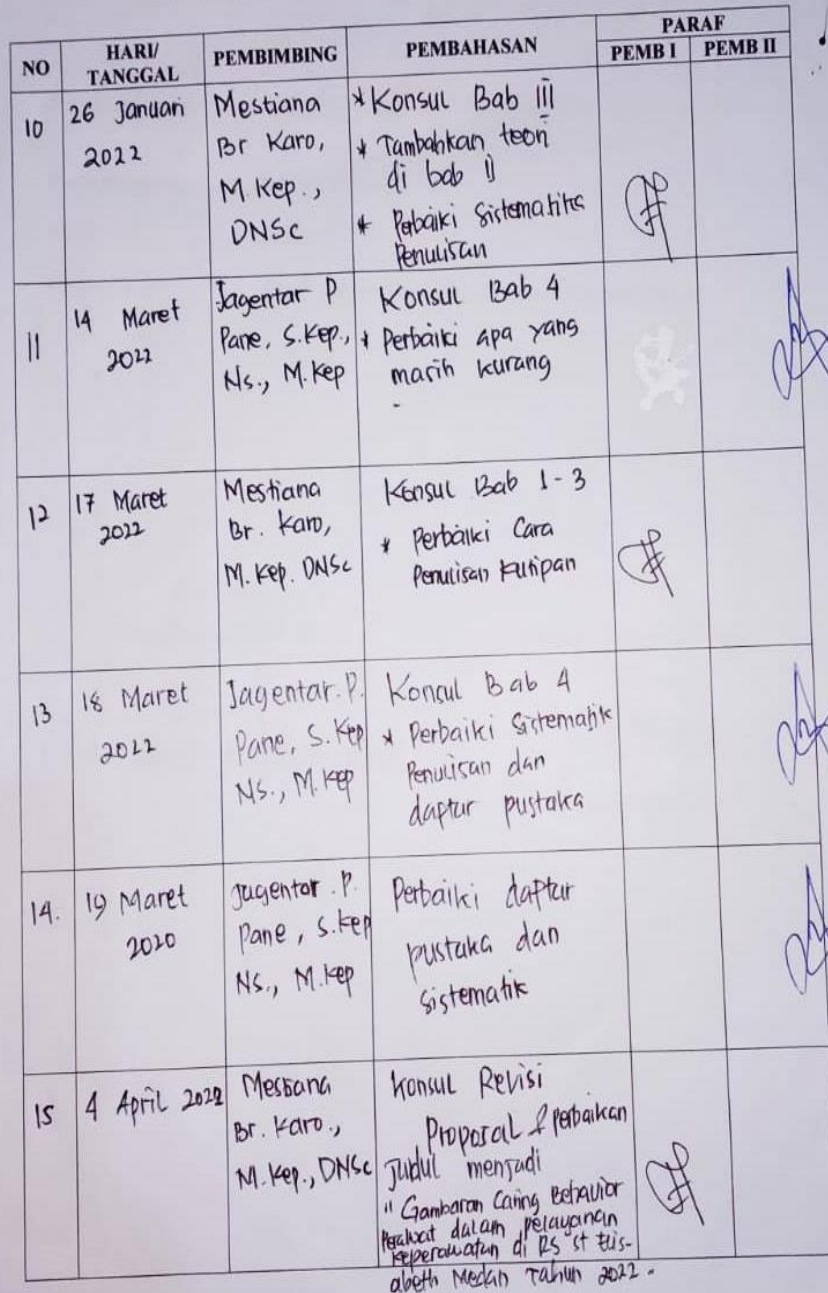 NO HARI/ TANGGAL PEMBIMBING PEMBAHASAN PARAF
PEMB I PEMB II
10 26 Januari 2022 Mestiana Br Karo, M.Kep., DNSc
* Konsul Bab III
* Tambahkan teori
di bab II
* Perbaiki Sistematika
Penulisan
11 14 Maret 2022 Jagentar P Pane, S.Kep., Ns., M.Kep
Konsul Bab 4
* Perbaiki apa yang
masih kurang
-
12 17 Maret 2022 Mestiana Br. Karo, M.Kep. DNSc
Konsul Bab 1-3
* Perbaiki Cara
Penulisan kutipan
13 18 Maret 2022 Jagentar. P. Pane, S.Kep Ns., M.Kep
Konsul Bab 4
* Perbaiki Sistematik
Penulisan dan
daptur pustaka
14. 19 Maret 2020 Jagentar. P. Pane, S.Kep Ns., M.Kep
Perbaiki daptur
pustaka dan
sistematik
15 4 April 2022 Mestiana Br. Karo., M.Kep., DNSc
Konsul Revisi
Proposal & perbaikan
Judul menjadi
" Gambaran Caring Behavior
Perawat dalam pelayanan
keperawatan di RS st Elis-
abeth Medan Tahun 2022.